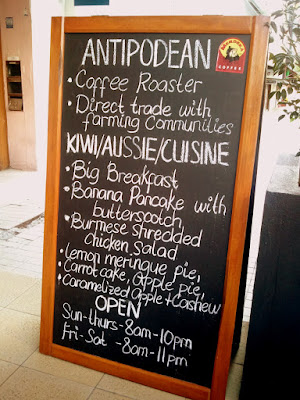 ANTIPODEAN
• Coffee Roaster
• Direct trade with
farming Communities
KIWI/AUSSIE/CUISINE
• Big Breakfast
• Banana Pancake with
butterscotch
• Burmese Shredded
Chicken Salad
• Lemon meringue pie,
• Carrot cake, Apple pie,
• Caramelized Apple + Cashew
OPEN
Sun-thurs-8am-10pm
Fri-Sat -8am-11pm
COFFEE